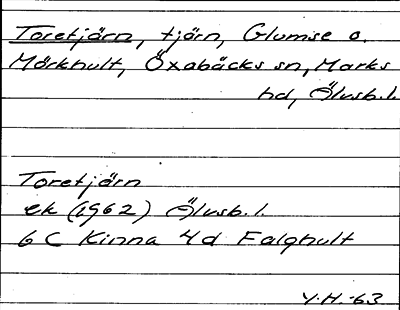 Toretjärn, tjärn, Glumse o.
Mörkhult, Öxabäcks sn, Marks
hd, Älvsb.l.
Toretjärn
ek (1962) Älvsb.l.
6 C Kinna 4d Falghult
Y.H.-63